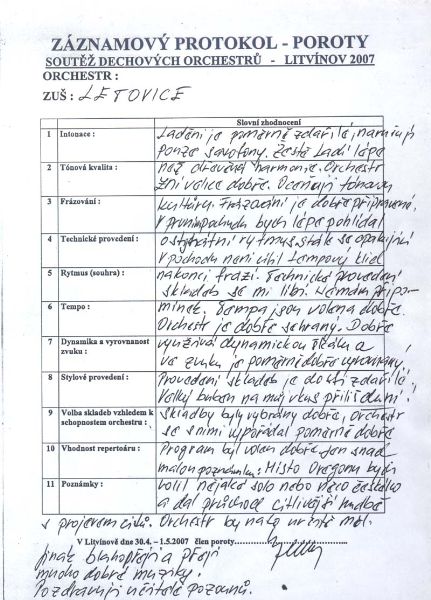 ZÁZNAMOVÝ PROTOKOL - POROTY
SOUTĚŽ DECHOVÝCH ORCHESTRŮ - LITVÍNOV 2007
ORCHESTR :
ZUŠ : LETOVICE
Slovní zhodnocení
1 Intonace : Ladění je poměrně zdařilé, narušují
pouze saxofony. Žestě ladí lépe
2 Tónová kvalita : než dřevěná harmonie. Orchestr
zní velice dobře. Oceňuji tónovou
3 Frázování : kulturu. Frázování je dobře připravené.
V prvním pochodu bych lépe pohlídal
4 Technické provedení : ostinátní rytmus, stále se opakující
V pochodu není cítil tempový klid
5 Rytmus (souhra) : nakonci frází. Technické provedení
skladeb se mi líbí. Nemám připo-
6 Tempo : mínek. Tempa jsou volena dobře.
Orchestr je dobře sehraný. Dobře
7 Dynamika a vyrovnanost zvuku : využívá dynamickou škálu a
ve zvuku je poměrně dobře vyrovnaný.
8 Stylové provedení : Provedení skladeb je dosti zdařilé,
Velký buben na můj vkus příliš duní.
9 Volba skladeb vzhledem k schopnostem orchestru : Skladby byly vybrány dobře, orchestr
se s nimi vypořádal poměrně dobře
10 Vhodnost repertoáru : Program byl volen dobře. Jen snad
malou poznámku: Místo Oregonu bych
11 Poznámky : volil nějaké solo nebo něco českého
a dal průchod citlivější hudbě
s projevem citů. Orchestr by na to určitě měl.
V Litvínově dne 30.4. - 1.5.2007 člen poroty
Jinak blahopřeji a přeji
mnoho dobré muziky.
Pozdravuji učitele pozounů.